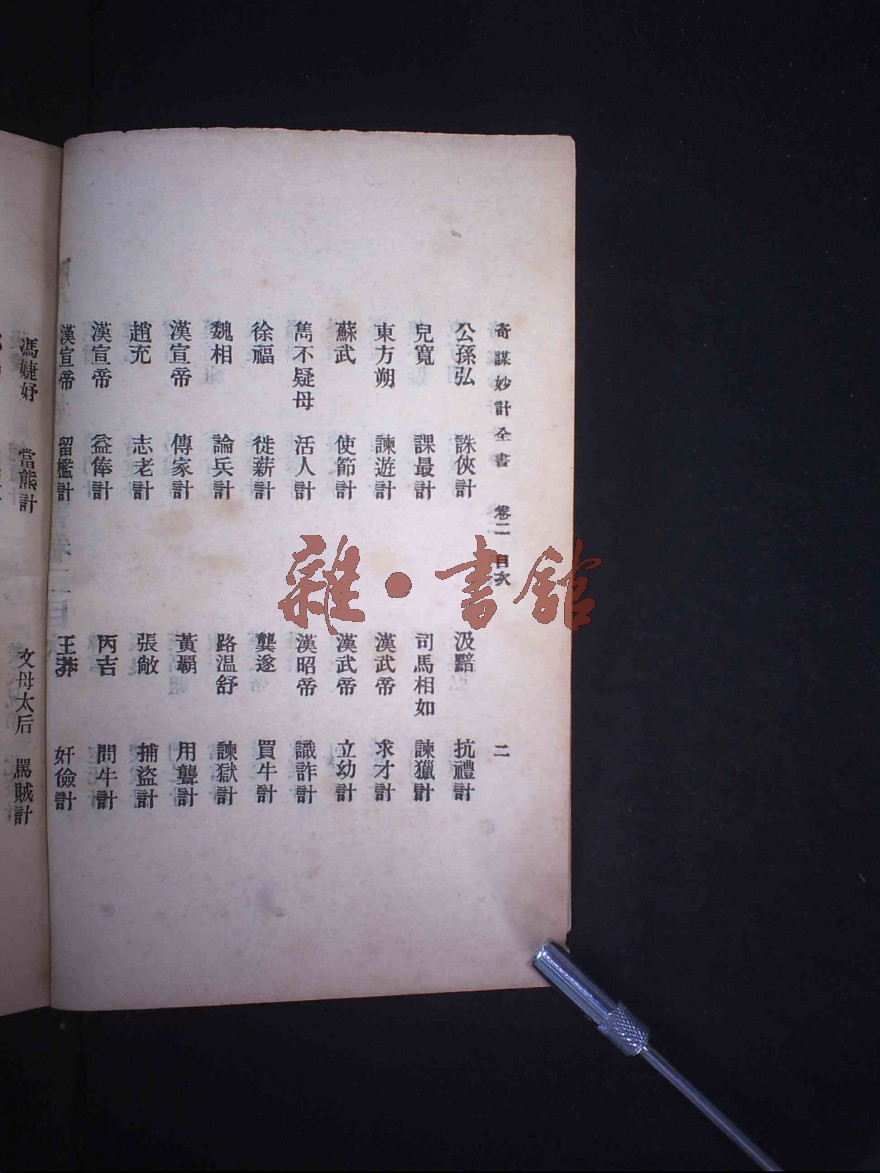 奇謀妙計全書 卷二 目次 二
公孫弘 誅俠計 汲黯 抗禮計
兒寬 課最計 司馬相如 諫獵計
東方朔 諫遊計 漢武帝 求才計
蘇武 使節計 漢武帝 立幼計
雋不疑母 活人計 漢昭帝 識詐計
徐福 徙薪計 龔遂 買牛計
魏相 論兵計 路温舒 諫獄計
漢宣帝 傳家計 黃霸 用聾計
趙充 志老計 張敞 捕盜計
漢宣帝 益俸計 丙吉 問牛計
漢宣帝 留檻計 王莽 奸儉計
馮婕妤 當熊計 文母太后 罵賊計
雜·書館